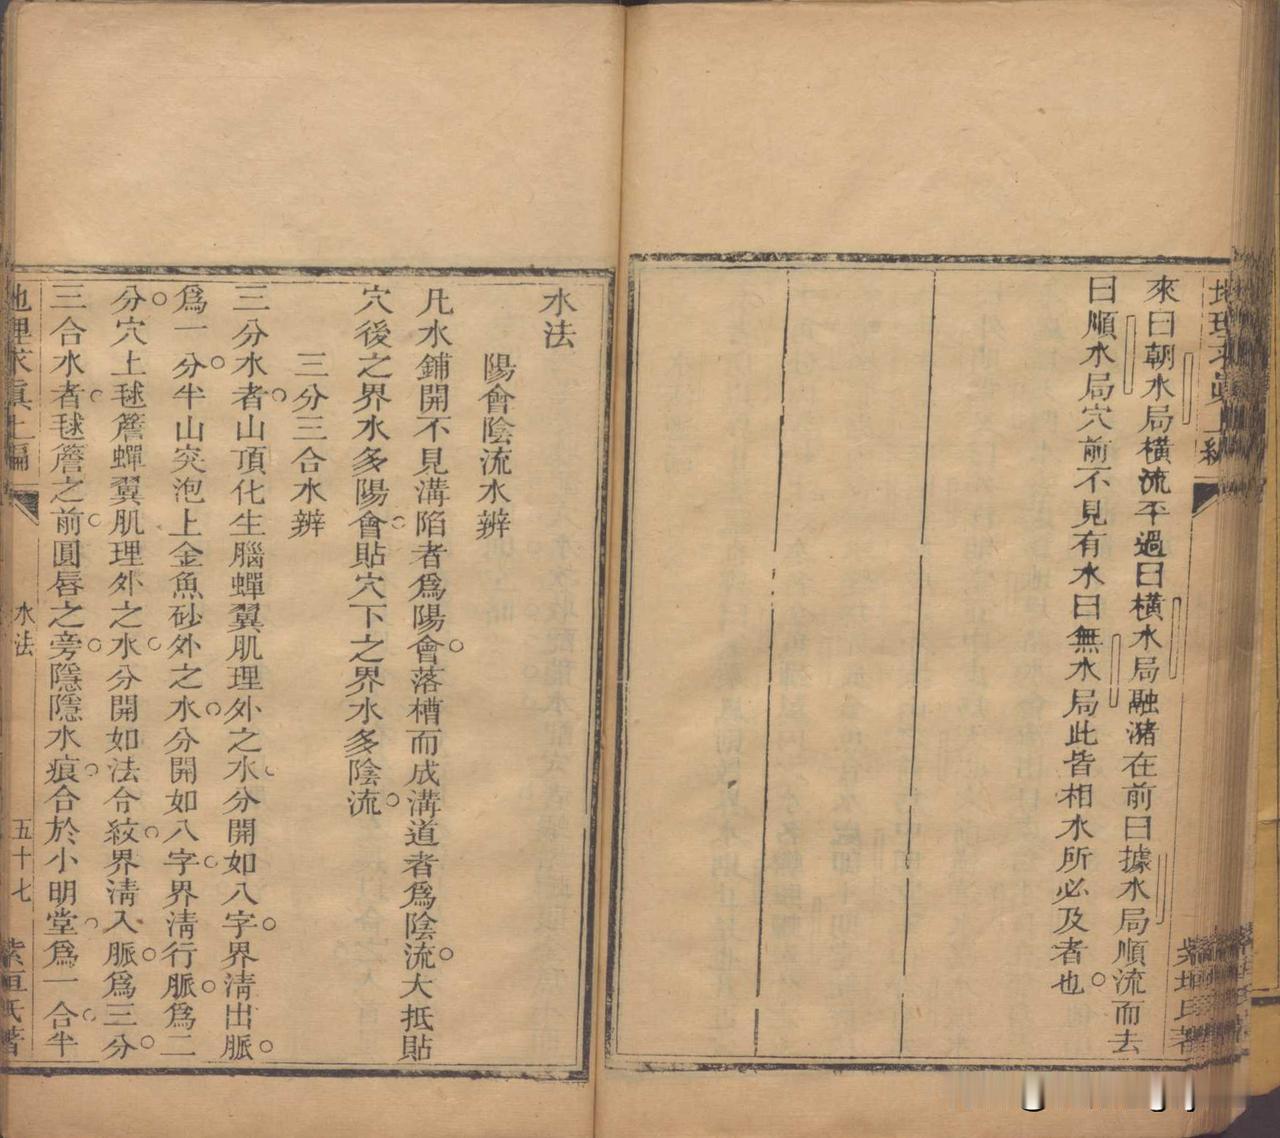 來曰朝水局橫流平過曰橫水局融瀦在前曰據水局順流而去
曰順水局穴前不見有水曰無水局此皆相水所必及者也
水法
陽會陰流水辨
凡水鋪開不見溝陷者為陽會落槽而成溝道者為陰流大抵貼
穴後之界水多陽會貼穴下之界水多陰流
三分三合水辨
三分水者山頂化生腦蟬翼肌理外之水分開如八字界清出脈
為一分半山突泡上金魚砂外之水分開如八字界清行脈為二
分穴上毬簷蟬翼肌理外之水分開如法令紋界清入脈為三分
三合水者毬簷之前圓唇之旁隱隱水痕合於小明堂為一合半
地理求真上編
水法
五十七
紫垣氏著